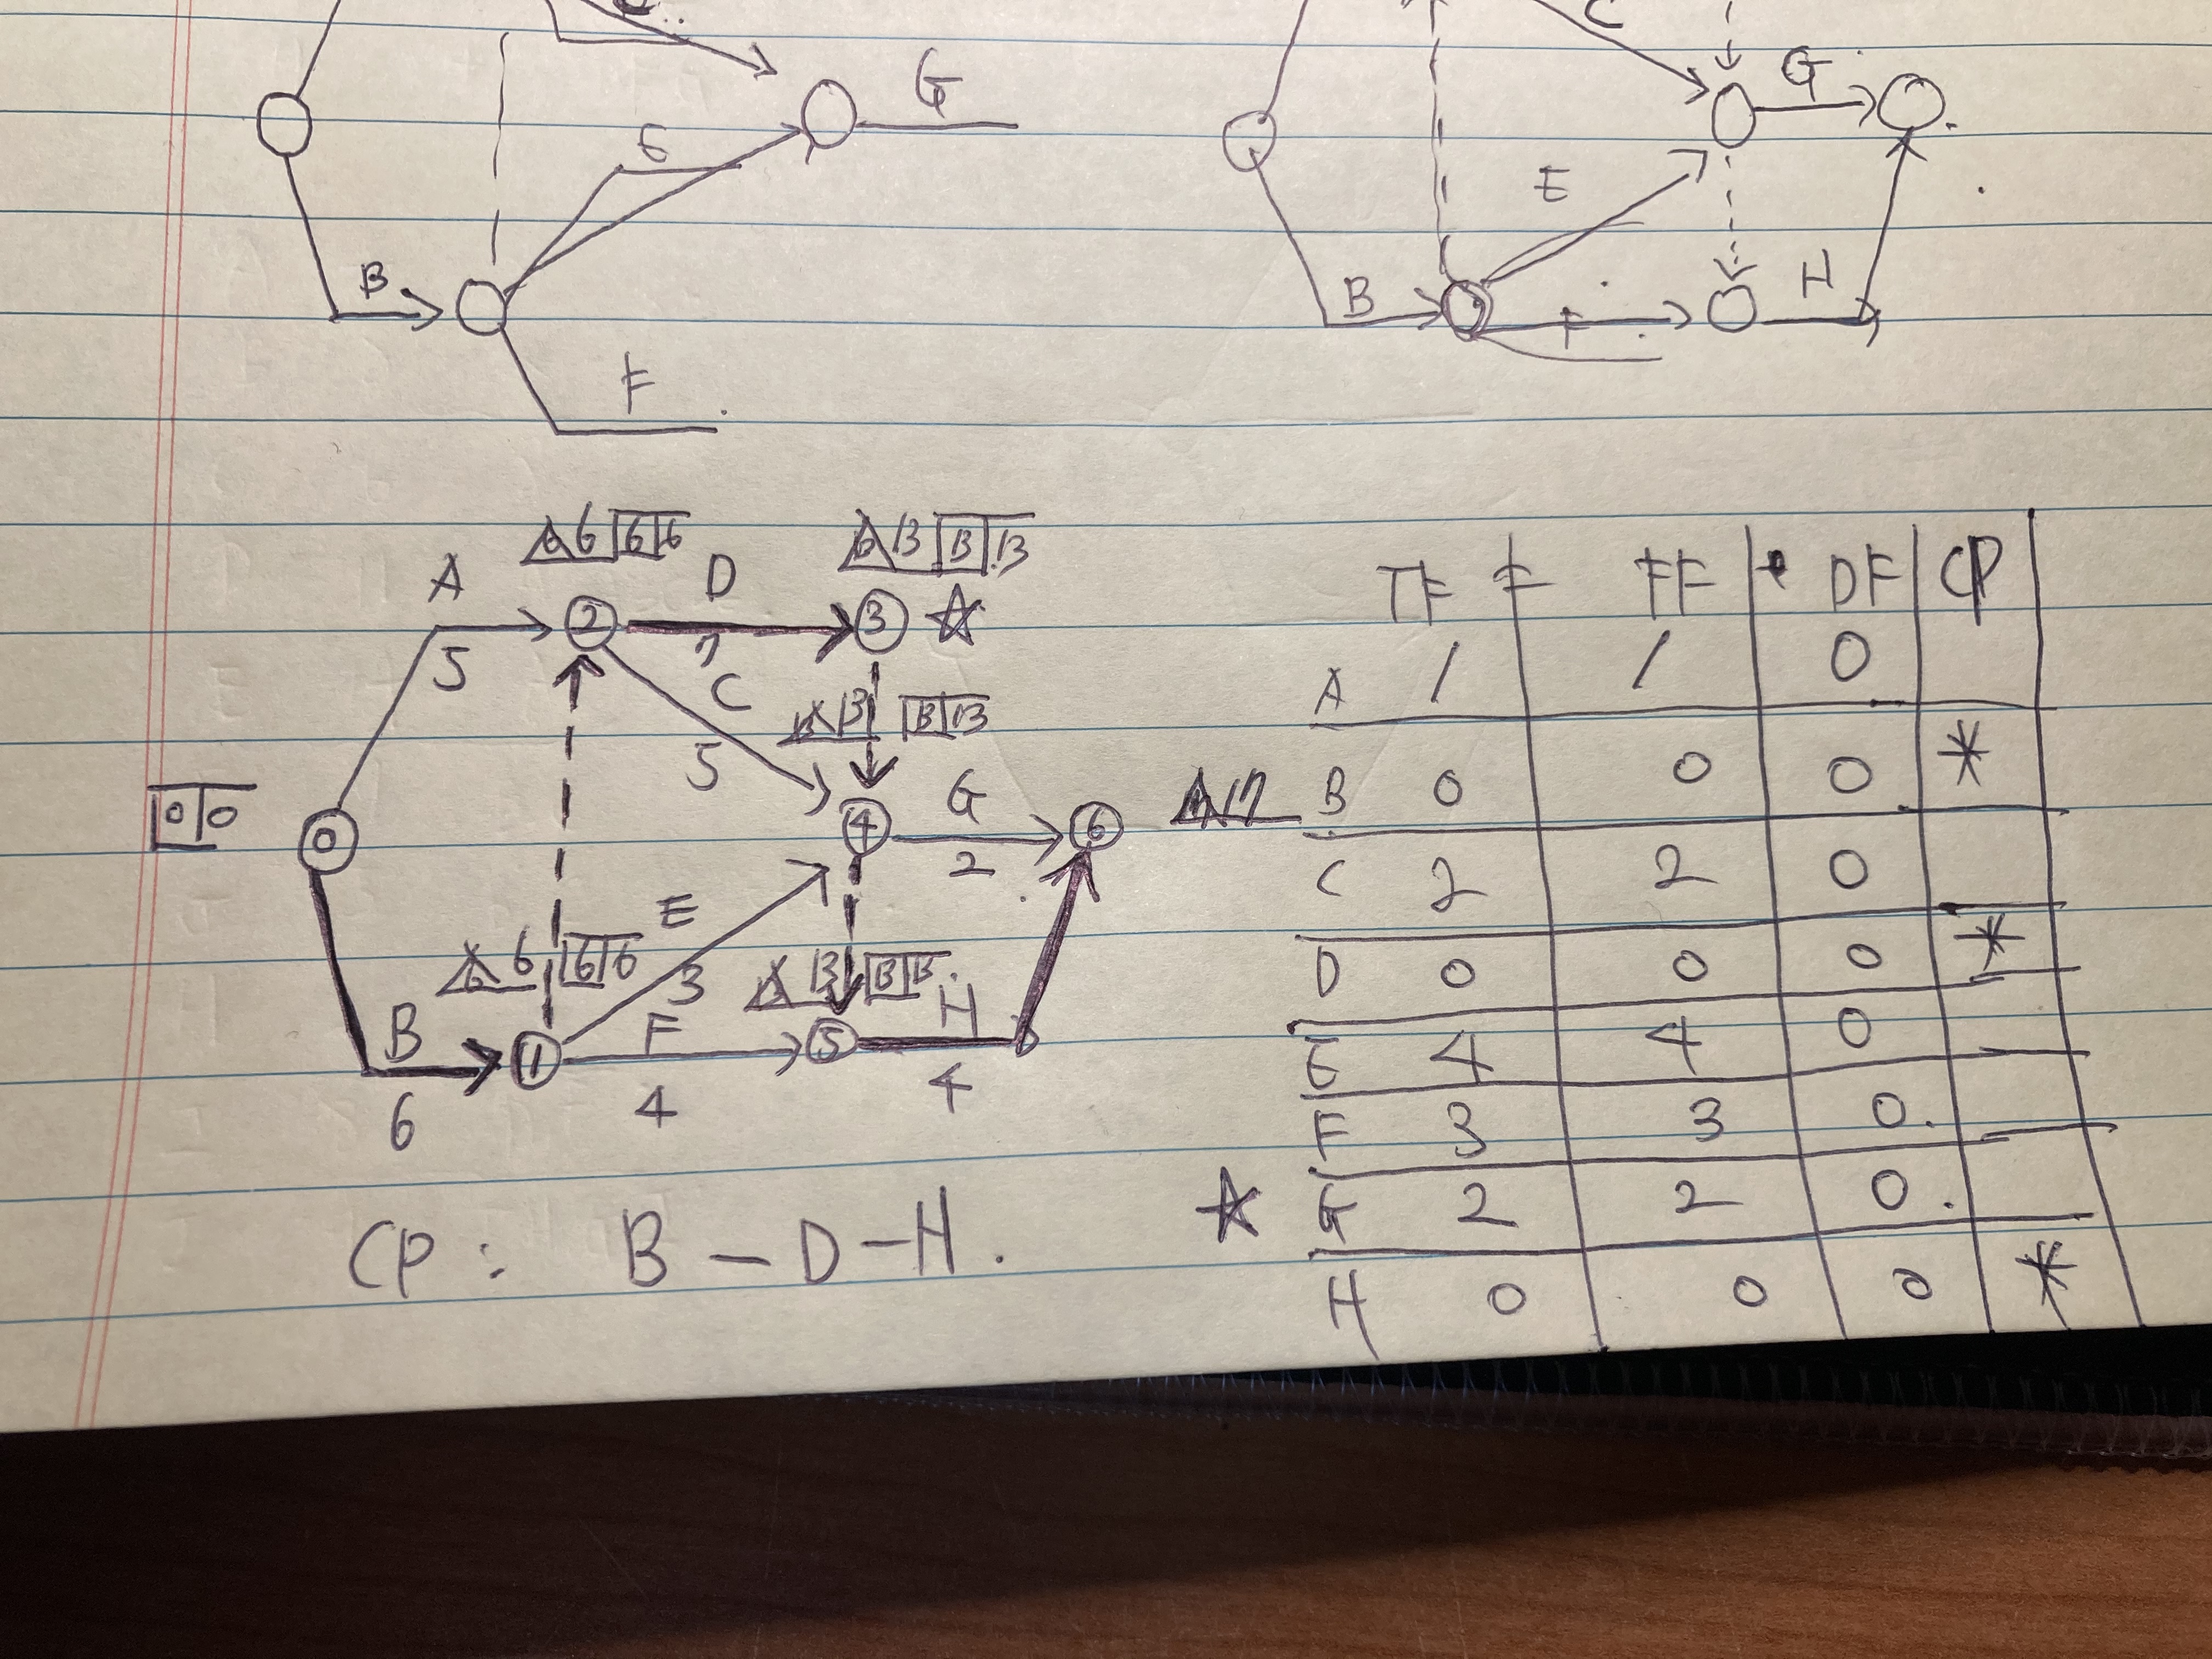 C
C
G
G
E
E
B
B
F
H
F
6 6 6
13 13 13
A
D
5
7
C
13 13 13
5
0 0
0
2
3
4
G
6
17
2
E
6 6 6
3
13 13 13
B
1
F
5
H
6
4
4
CP : B - D - H .
TF FF DF CP
A 1 1 0
B 0 0 0 *
C 2 2 0
D 0 0 0 *
E 4 4 0
F 3 3 0.
G 2 2 0.
H 0 0 0 *